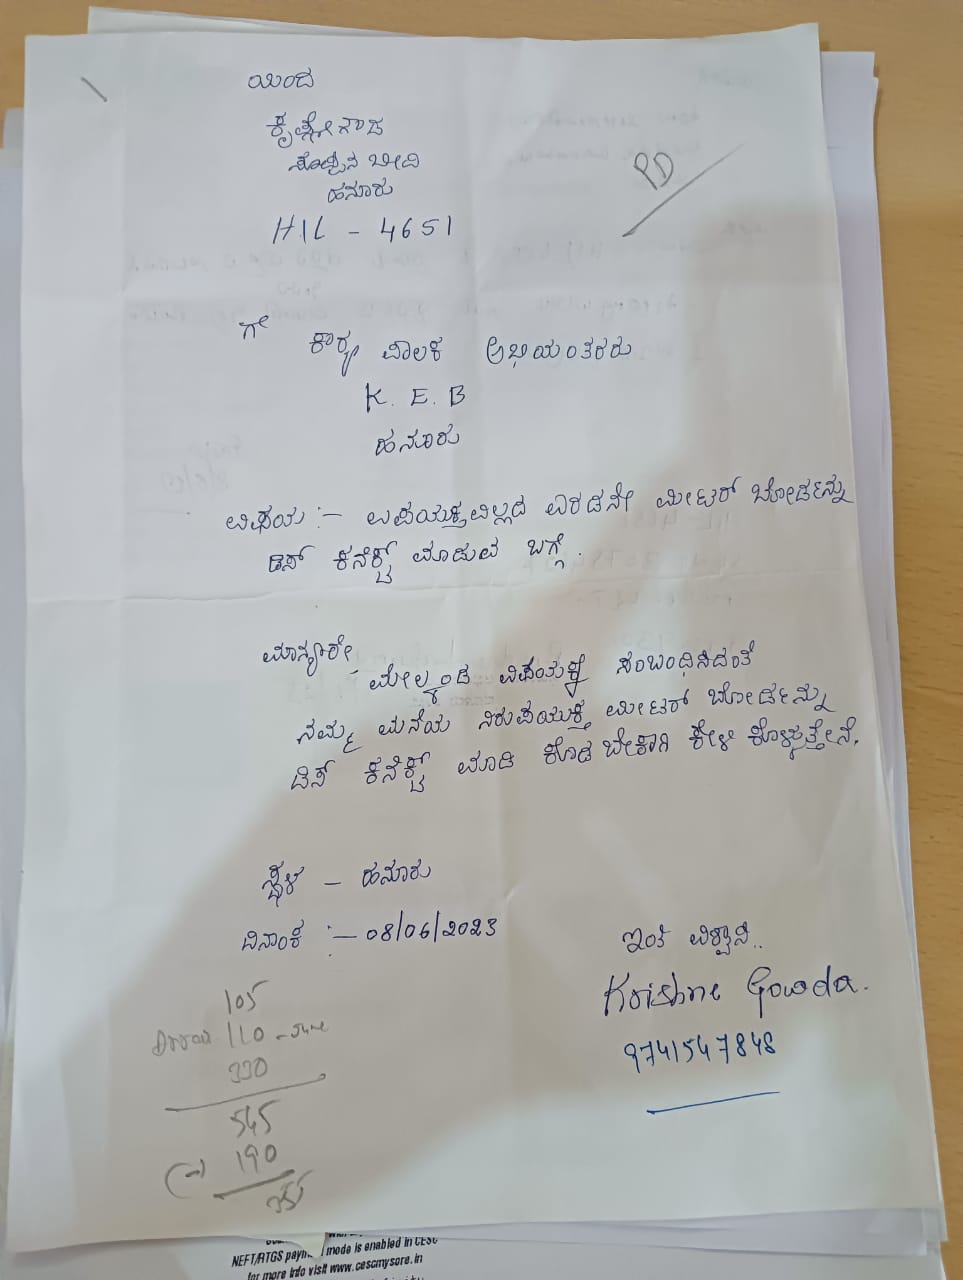 ಯಿಂದ
ಕೃಷ್ಣೇಗೌಡ
ಬೀದಿ
ಹನೂರು
PD
HIL - 4651
ಗೇ
ಕಾರ್ಯ ಪಾಲಕ ಅಭಿಯಂತಕರು
K. E. B
ಹನೂರು
ವಿಷಯ :- ಉಪಯುಕ್ತವಿಲ್ಲದ ಎರಡನೇ ಮೀಟರ್ ಬೋರ್ಡನ್ನು
ಡಿಸ್ ಕನೆಕ್ಟ್ ಮಾಡುವ ಬಗ್ಗೆ.
ಮಾನ್ಯರೇ,
ಮೇಲ್ಕಂಡ ವಿಷಯಕ್ಕೆ ಸಂಬಂಧಿಸಿದಂತೆ
ನಮ್ಮ ಮನೆಯ ನಿರುಪಯುಕ್ತ ಮೀಟರ್ ಬೋರ್ಡನ್ನು
ಡಿಸ್ ಕನೆಕ್ಟ್ ಮಾಡಿ ಕೊಡಬೇಕಾಗಿ ಕೇಳಿ ಕೊಳ್ಳುತ್ತೇನೆ.
ಸ್ಥಳ - ಹನೂರು
ದಿನಾಂಕ :- 08/06/2023
ಇಂತಿ ವಿಶ್ವಾಸಿ..
Krishne Gowda.
9741547848
105
110 - June
330
545
(-) 190
355
NEFT/RTGS mode is enabled in CESC
for more info visit www.cescmysore.in